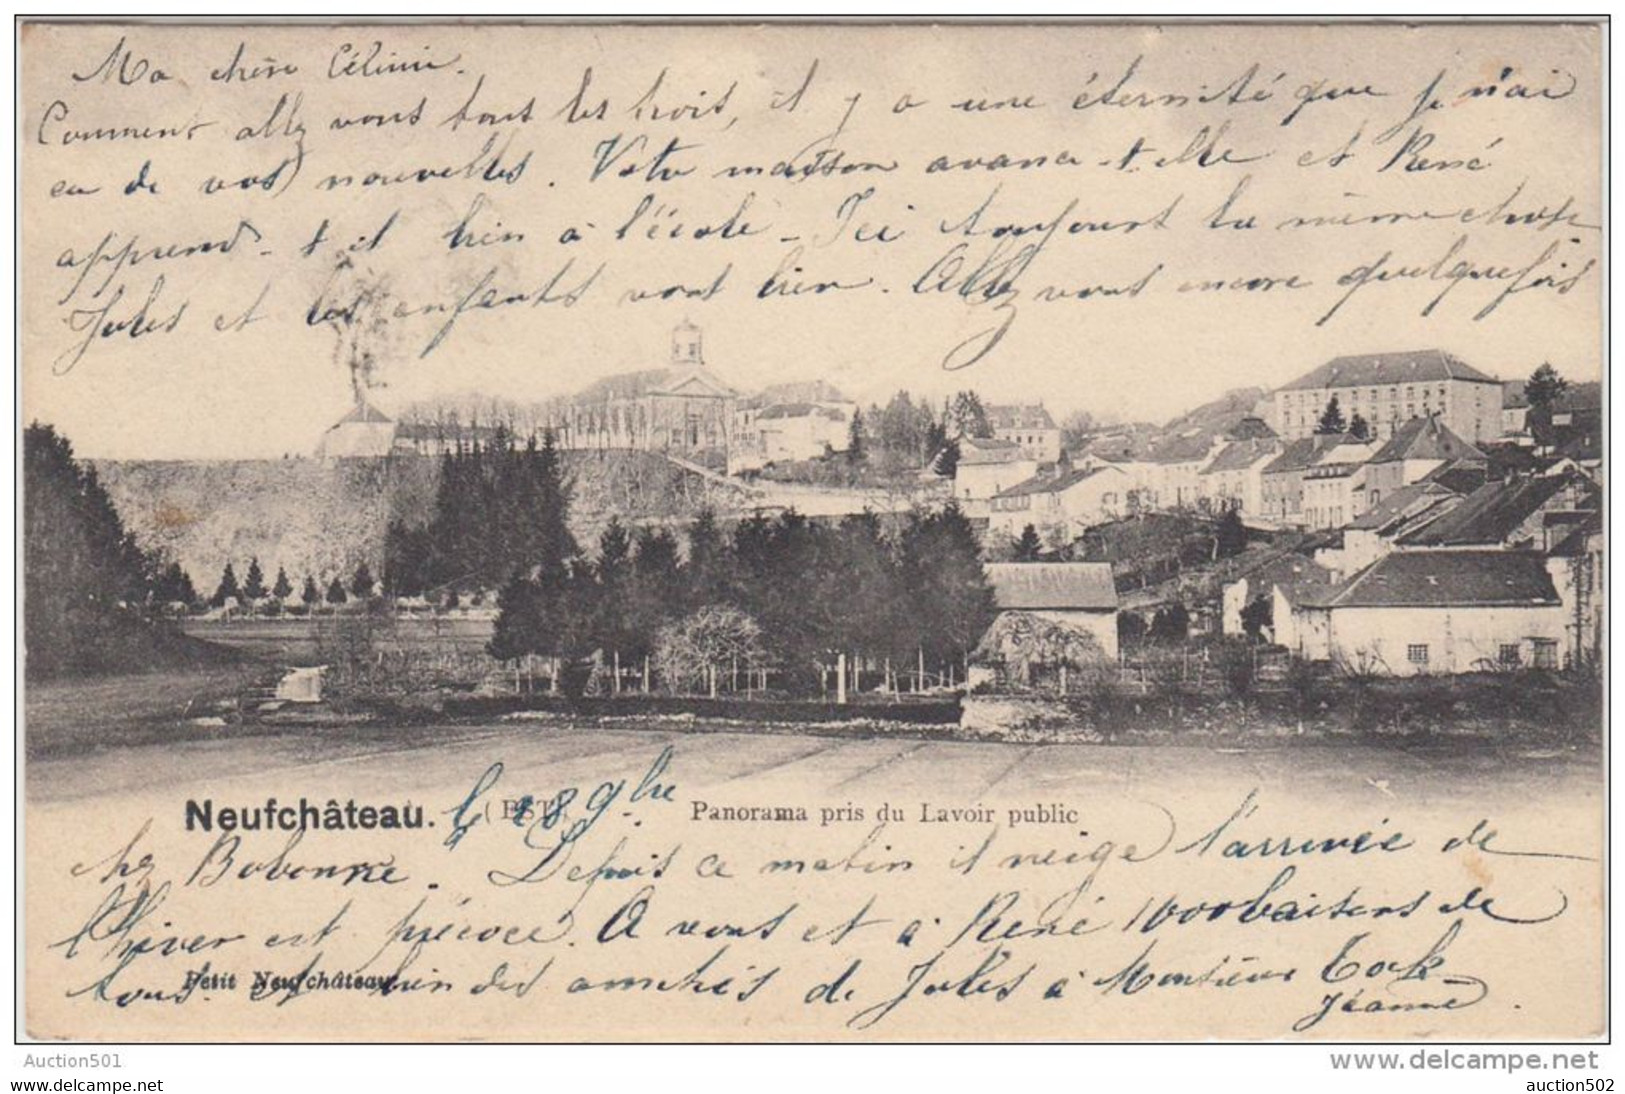 Ma chère Céline.
Comment allez vous tous les trois, il y a une éternité que je n'ai
eu de vos nouvelles. Votre maison avance-t-elle et René
apprend-t il bien à l'école - Ici toujours la même chose
Jules et les enfants vont bien. Allez vous encore quelquefois
Neufchâteau. le 28 9bre Panorama pris du Lavoir public
chez Bobonne. Depuis ce matin il neige l'arrivée de
l'hiver est précoce. A vous et à René 1000 baisers de
tous. et bien des amitiés de Jules à Monsieur
Petit Neufchâteau
Jeanne.
Auction501
www.delcampe.net
auction502
auction502